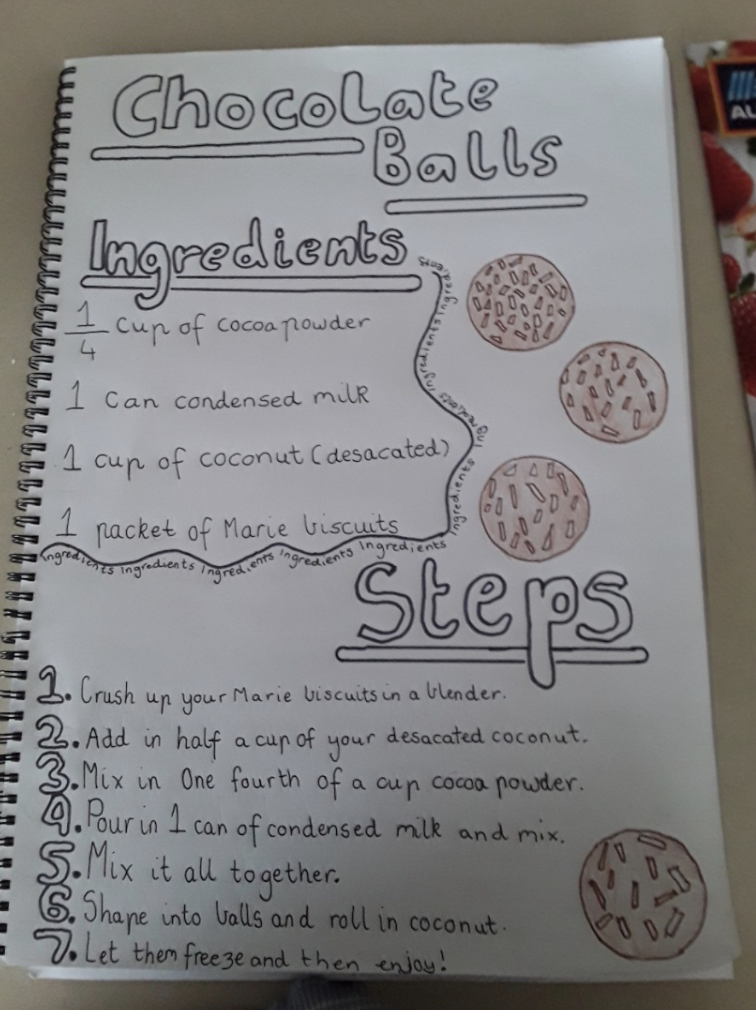 Chocolate
Balls
Ingredients
1/4 cup of cocoa powder
1 can condensed milk
1 cup of coconut (desacated)
1 packet of Marie biscuits
Ingredients Ingredients Ingredients Ingredients Ingredients Ingredients
Steps
1. Crush up your Marie biscuits in a blender.
2. Add in half a cup of your desacated coconut.
3. Mix in One fourth of a cup cocoa powder.
4. Pour in 1 can of condensed milk and mix.
5. Mix it all together.
6. Shape into balls and roll in coconut.
7. Let them freeze and then enjoy!
AL